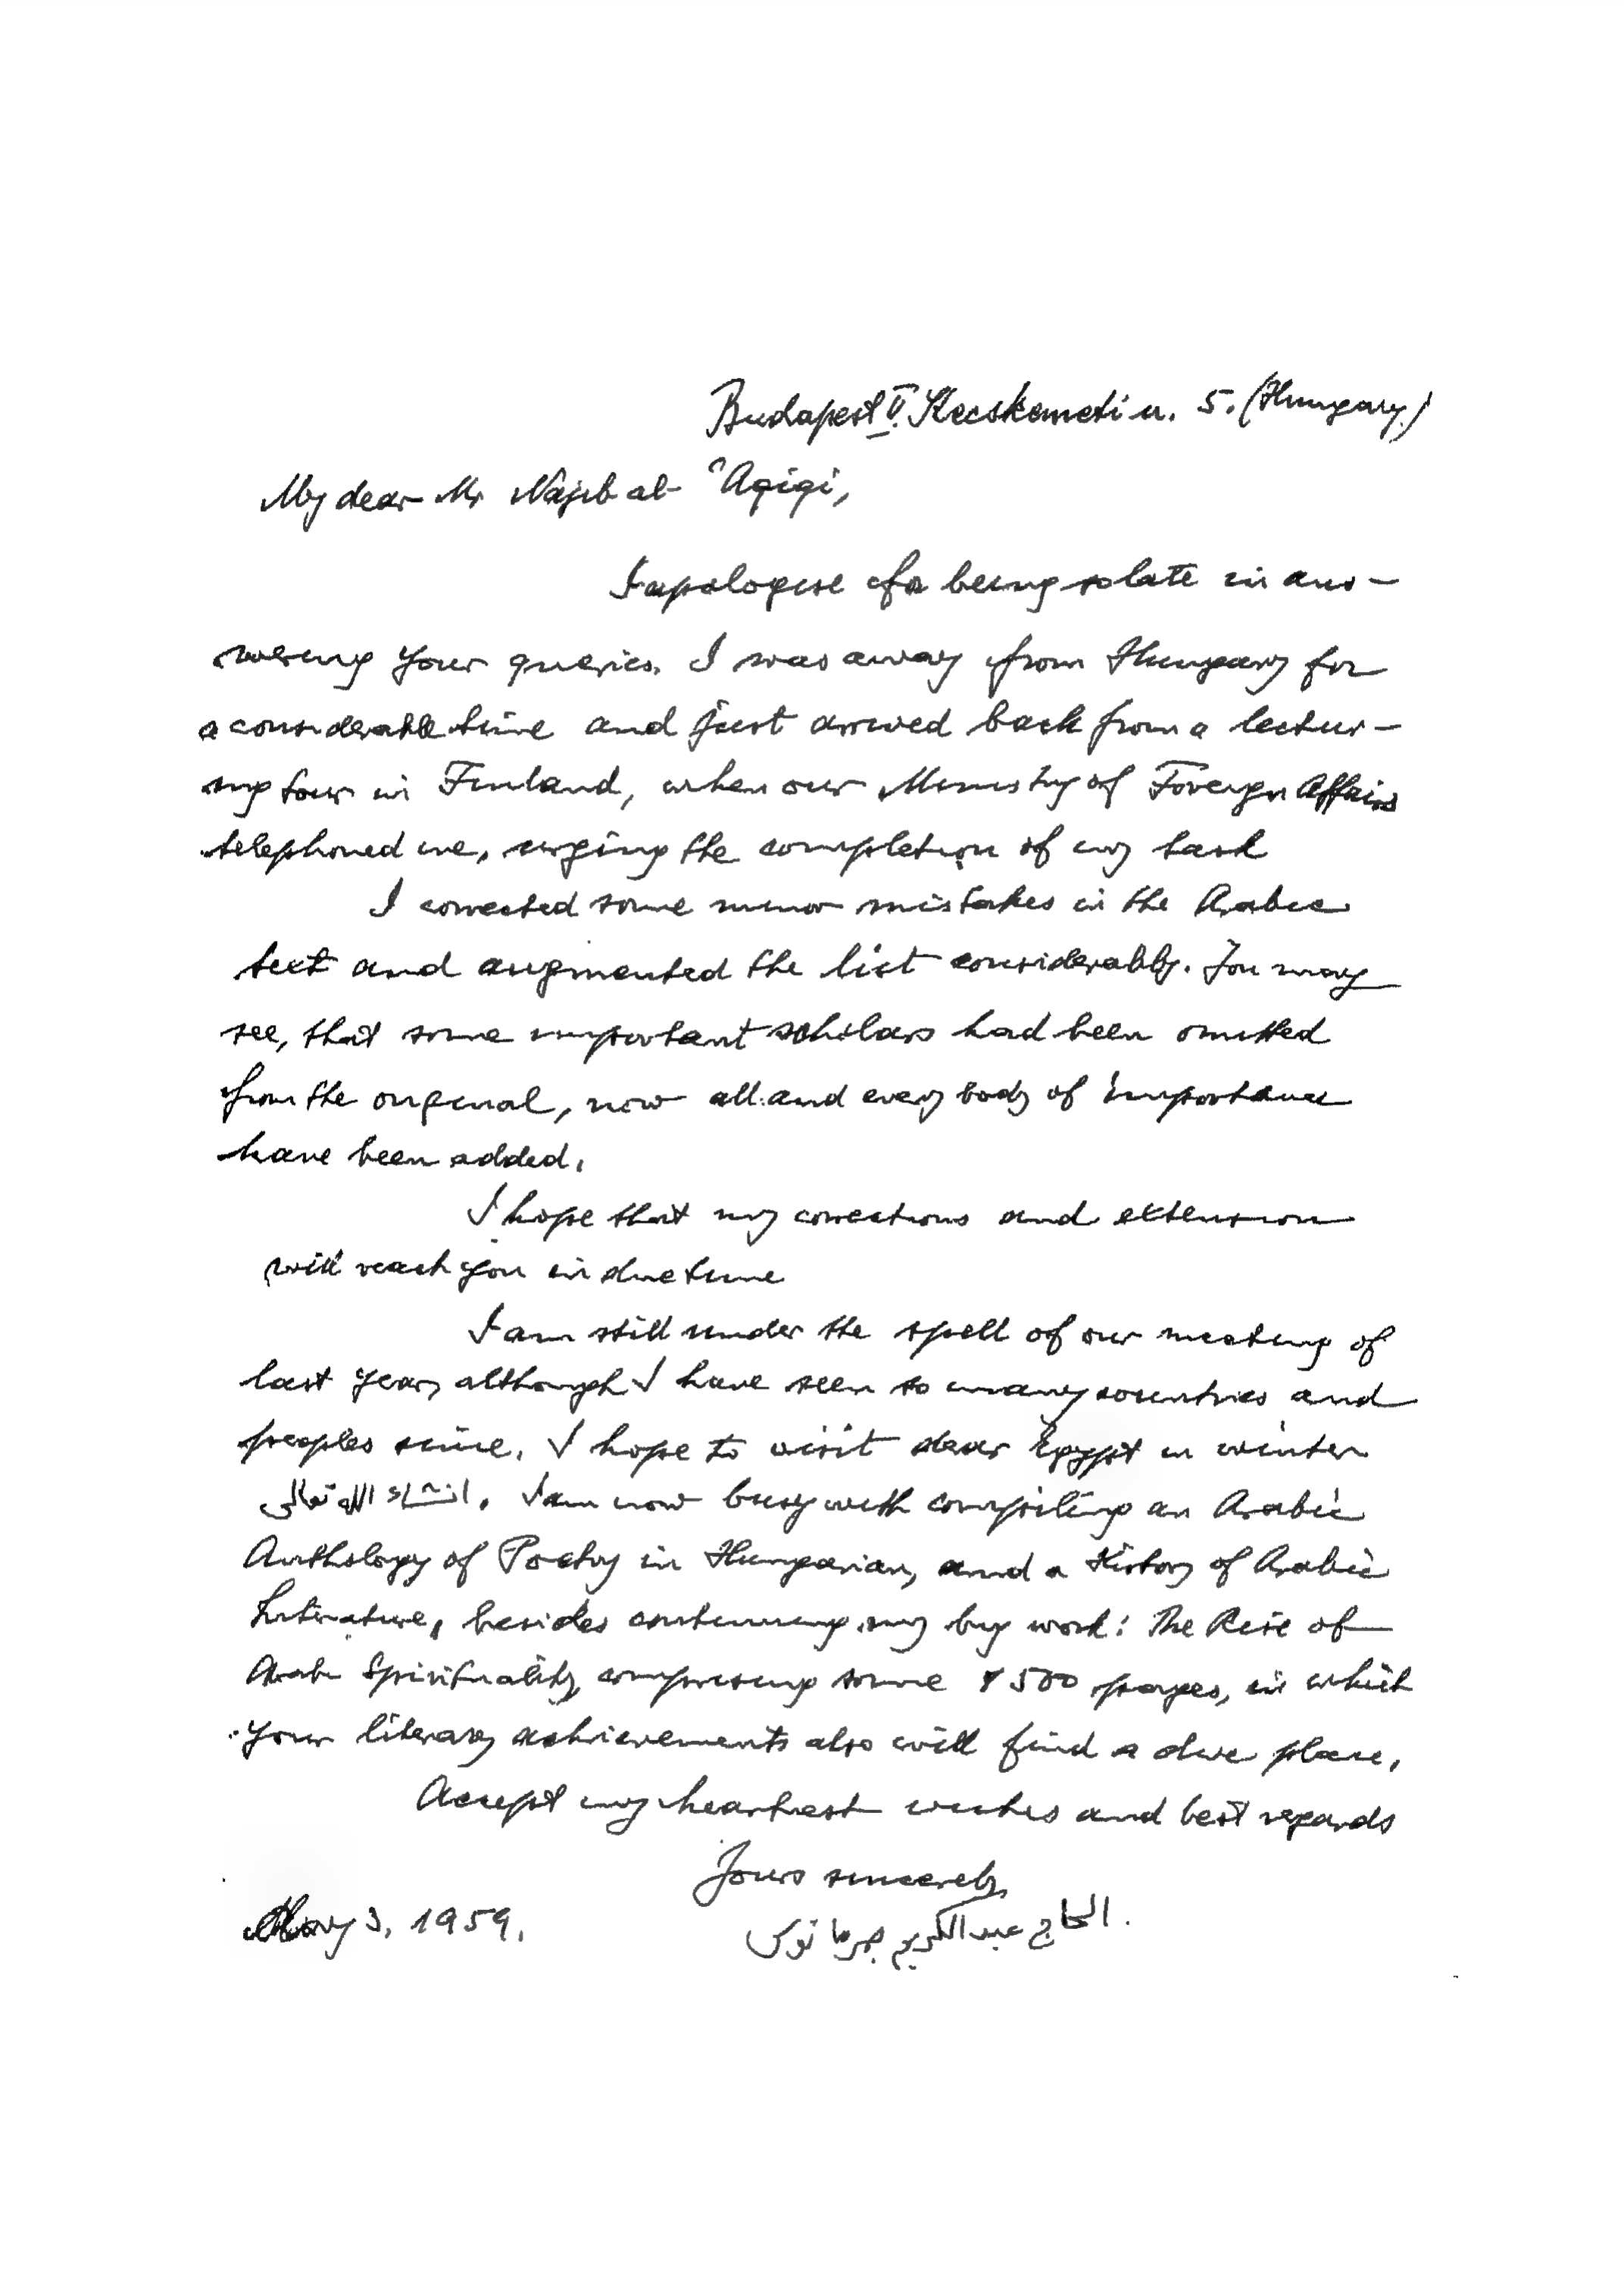 Budapest V. Kecskemeti u. 5. (Hungary)
My dear Mr Najib al- ʿAqiqi,
I apologise for being so late in ans-
wering your queries. I was away from Hungary for
a considerable time and just arrived back from a lectur-
ing tour in Finland, when our Ministry of Foreign Affairs
telephoned me, urging the completion of my task
I corrected some minor mistakes in the Arabic
text and augmented the list considerably. You may
see, that some important scholars had been omitted
from the original, now all and every body of importance
have been added.
I hope that my corrections and extension
will reach you in due time
I am still under the spell of our meeting of
last year, although I have seen so many countries and
peoples since. I hope to visit dear Egypt in winter
انشاء الله تعالى. I am now busy with compiling an Arabic
Anthology of Poetry in Hungarian, and a History of Arabic
Literature, besides continuing my big work: The Rise of
Arab Spirituality, comprising some 1500 pages, in which
your literary achievements also will find a due place.
Accept my heartiest wishes and best regards
Yours sincerely,
May 3, 1959. الحاج عبد الكريم جرمانوس.